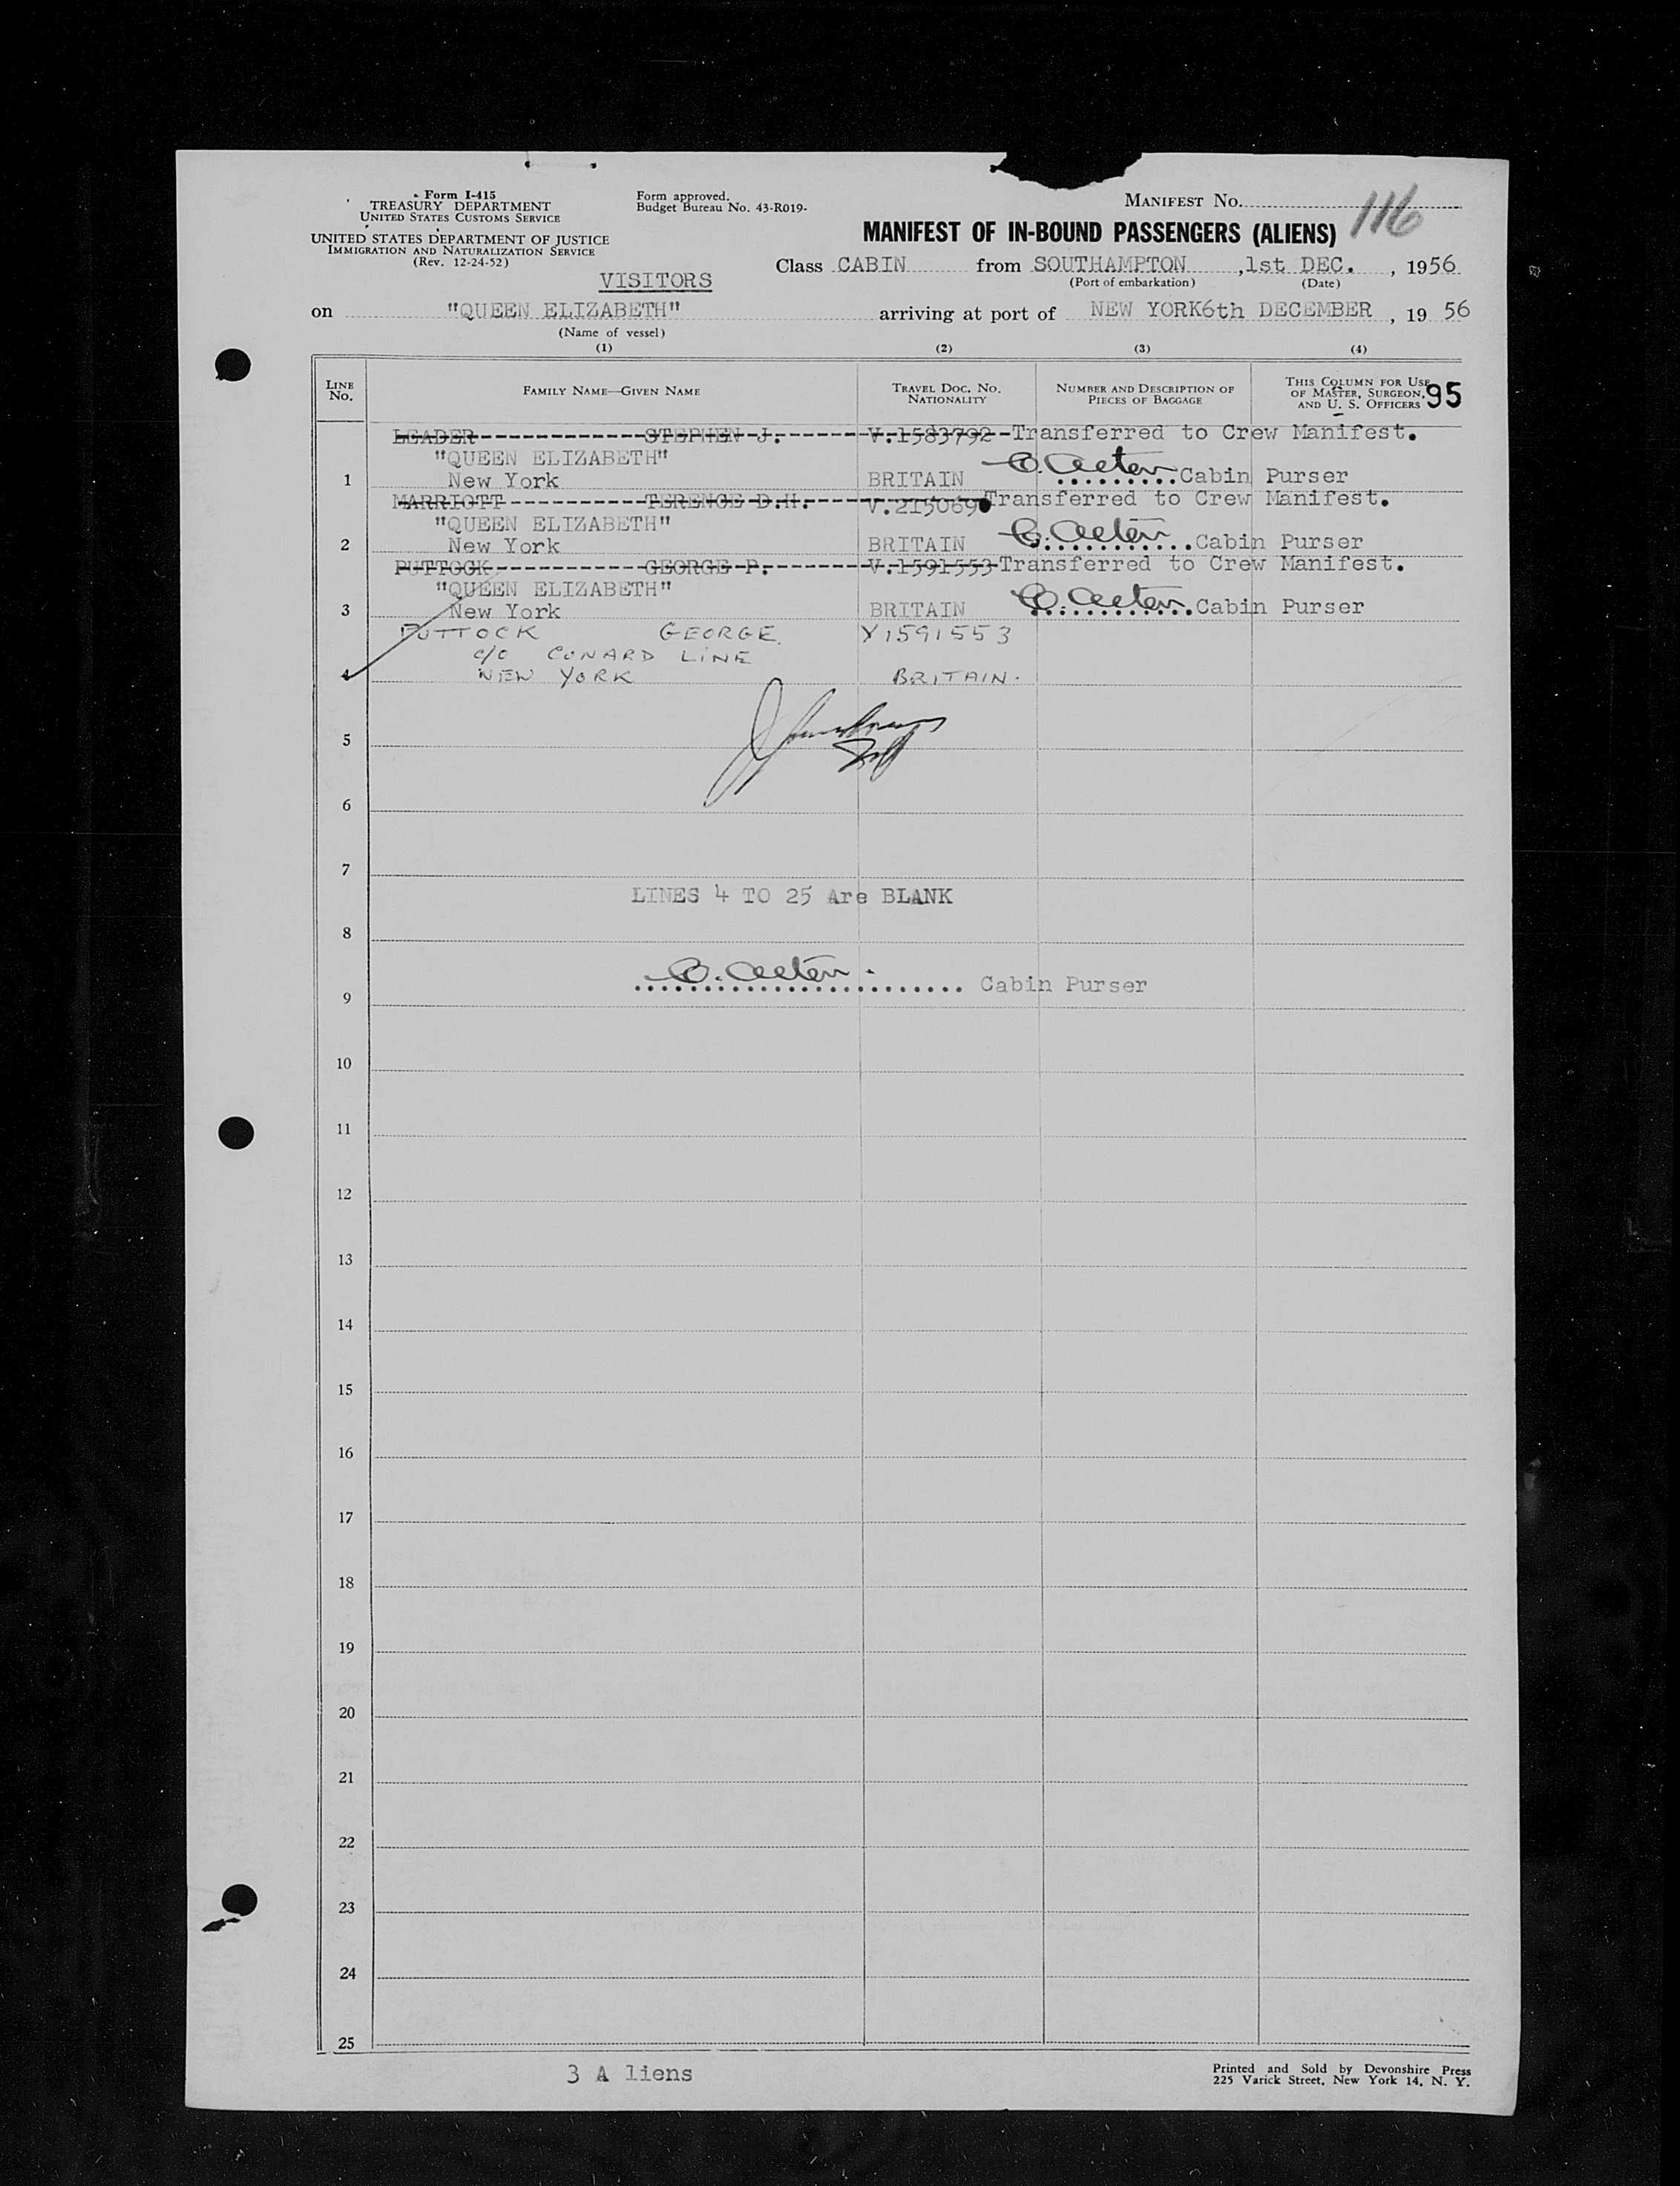 Form I-415
TREASURY DEPARTMENT
UNITED STATES CUSTOMS SERVICE
UNITED STATES DEPARTMENT OF JUSTICE
IMMIGRATION AND NATURALIZATION SERVICE
(Rev. 12-24-52)
Form approved.
Budget Bureau No. 43-R019-
MANIFEST NO.
116
MANIFEST OF IN-BOUND PASSENGERS (ALIENS)
VISITORS
Class CABIN from SOUTHAMPTON ,1st DEC. , 1956
(Port of embarkation) (Date)
on "QUEEN ELIZABETH" arriving at port of NEW YORK6th DECEMBER , 19 56
(Name of vessel)
(1) (2) (3) (4)
LINE NO. FAMILY NAME—GIVEN NAME TRAVEL DOC. NO. NATIONALITY NUMBER AND DESCRIPTION OF PIECES OF BAGGAGE THIS COLUMN FOR USE OF MASTER, SURGEON, AND U. S. OFFICERS 95
LEADER STEPHEN J. V.1583792 Transferred to Crew Manifest.
"QUEEN ELIZABETH"
1 New York BRITAIN Cabin Purser
MARRIOTT TERENCE D.H. Transferred to Crew Manifest.
"QUEEN ELIZABETH"
2 New York BRITAIN Cabin Purser
PUTTOCK GEORGE P. V.1591553 Transferred to Crew Manifest.
"QUEEN ELIZABETH"
3 New York BRITAIN Cabin Purser
PUTTOCK GEORGE. V1591553
c/o CUNARD LINE
4 NEW YORK BRITAIN.
5
6
7
LINES 4 TO 25 Are BLANK
8
Cabin Purser
9
10
11
12
13
14
15
16
17
18
19
20
21
22
23
24
25
3 A liens
Printed and Sold by Devonshire Press
225 Varick Street, New York 14, N. Y.